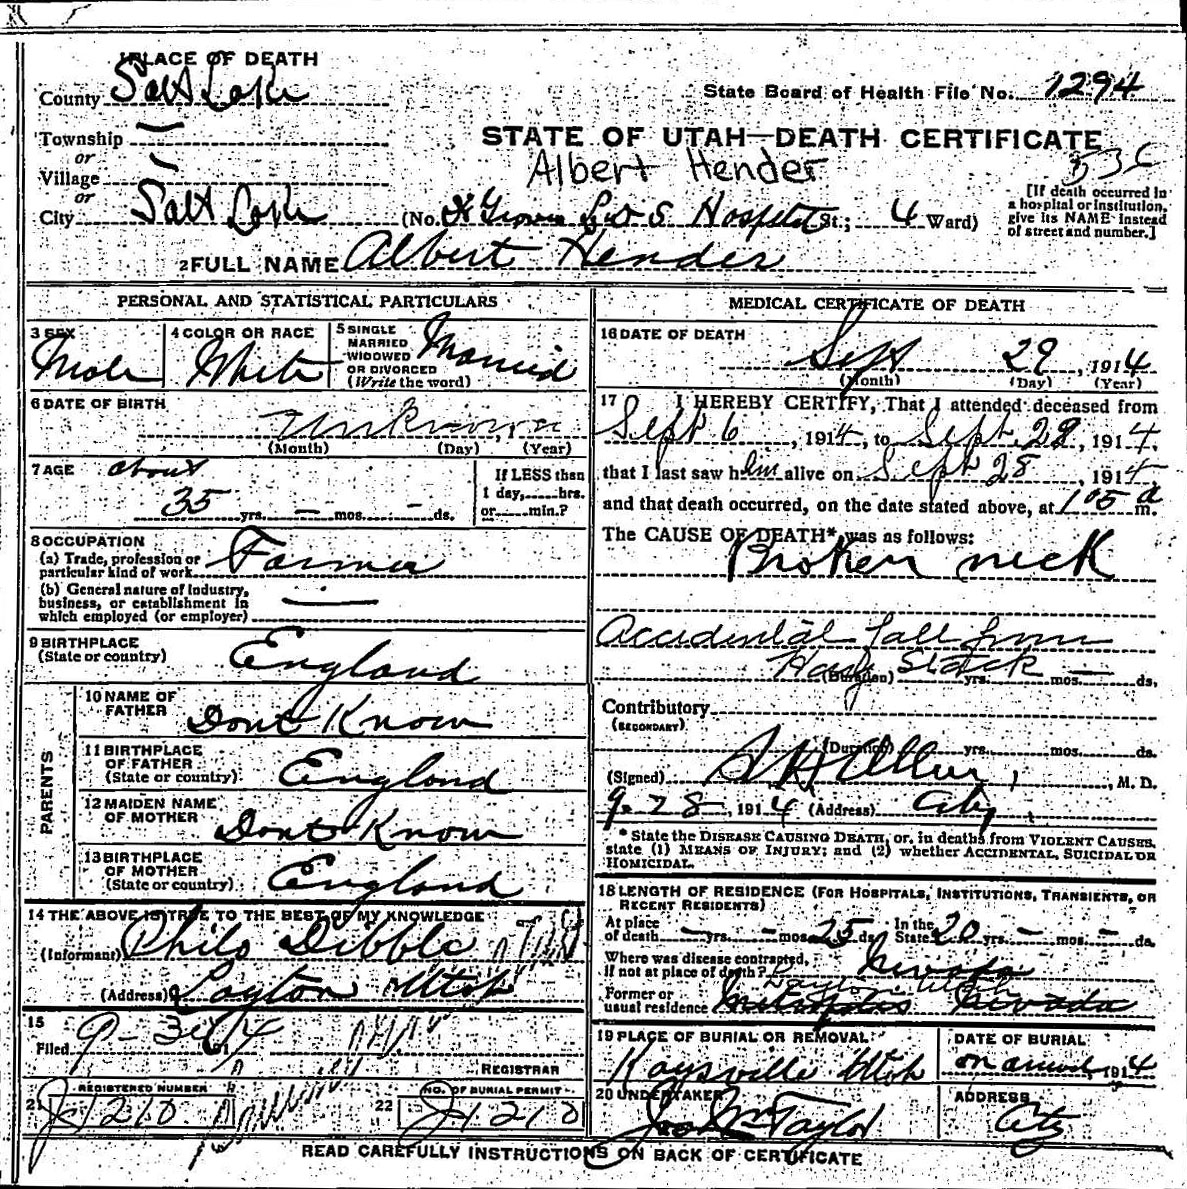 1 PLACE OF DEATH
County Salt Lake
State Board of Health File No. 1294
Township —
or
Village —
or
City Salt Lake
STATE OF UTAH—DEATH CERTIFICATE
Albert Hender
53C
(No. L D S Hospital St.; 4 Ward)
[If death occurred in
a hospital or institution,
give its NAME instead
of street and number.]
2 FULL NAME Albert Hender
PERSONAL AND STATISTICAL PARTICULARS
3 SEX
Male
4 COLOR OR RACE
White
5 SINGLE
MARRIED
WIDOWED
OR DIVORCED
(Write the word)
Married
6 DATE OF BIRTH
Unknown, 1
(Month) (Day) (Year)
7 AGE about
35 yrs. — mos. - ds.
If LESS than
1 day, hrs.
or min.?
8 OCCUPATION
(a) Trade, profession or
particular kind of work Farmer
(b) General nature of industry,
business, or establishment in
which employed (or employer) —
9 BIRTHPLACE
(State or country)
England
PARENTS
10 NAME OF
FATHER
Dont Know
11 BIRTHPLACE
OF FATHER
(State or country)
England
12 MAIDEN NAME
OF MOTHER
Dont Know
13 BIRTHPLACE
OF MOTHER
(State or country)
England
14 THE ABOVE IS TRUE TO THE BEST OF MY KNOWLEDGE
(Informant) Philo Dibble
(Address) Layton Utah
15
Filed 9-30 191 4
REGISTRAR
REGISTERED NUMBER
21 J-1210
NO. OF BURIAL PERMIT
22 J-1210
MEDICAL CERTIFICATE OF DEATH
16 DATE OF DEATH
Sept 29, 1914
(Month) (Day) (Year)
17 I HEREBY CERTIFY, That I attended deceased from
Sept 6, 1914, to Sept 28, 1914,
that I last saw him alive on Sept 28, 1914
and that death occurred, on the date stated above, at 105 a m.
The CAUSE OF DEATH* was as follows:
Broken neck
Accidental fall from
Hay Stack —
(Duration) yrs. mos. ds.
Contributory
(SECONDARY)
(Duration) yrs. mos. ds.
(Signed) , M. D.
9-28, 1914 (Address) City
* State the DISEASE CAUSING DEATH, or, in deaths from VIOLENT CAUSES,
state (1) MEANS OF INJURY; and (2) whether ACCIDENTAL, SUICIDAL OR
HOMICIDAL.
18 LENGTH OF RESIDENCE (FOR HOSPITALS, INSTITUTIONS, TRANSIENTS, OR
RECENT RESIDENTS)
At place
of death - yrs. - mos. 25 ds.
In the
State 20 yrs. - mos. - ds.
Where was disease contracted,
if not at place of death? Nevada
Layton Utah
Former or
usual residence Nevada
19 PLACE OF BURIAL OR REMOVAL
Kaysville Utah
DATE OF BURIAL
on arrival, 1914
20 UNDERTAKER
Taylor
ADDRESS
City
READ CAREFULLY INSTRUCTIONS ON BACK OF CERTIFICATE